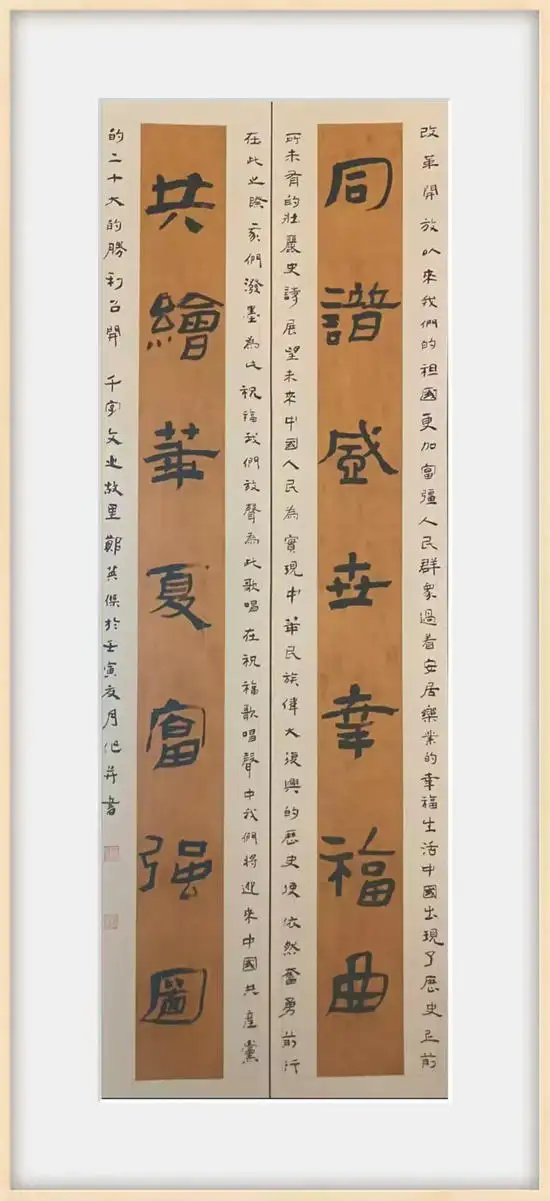 改革開放以來我們的祖國更加富强人民群衆過着安居樂業的幸福生活中國出現了歷史上前
同譜盛世幸福曲
所未有的壯麗史詩展望未來中國人民為實現中華民族偉大復興的歷史使 依然奮勇前行
在此之際 我們潑墨為此祝福我們放聲為此歌唱在祝福歌唱聲中我們將迎來中國共産黨
共繪華夏富强圖
的二十大的勝利召開 千字文之故里鄭英傑於壬寅 月 并書